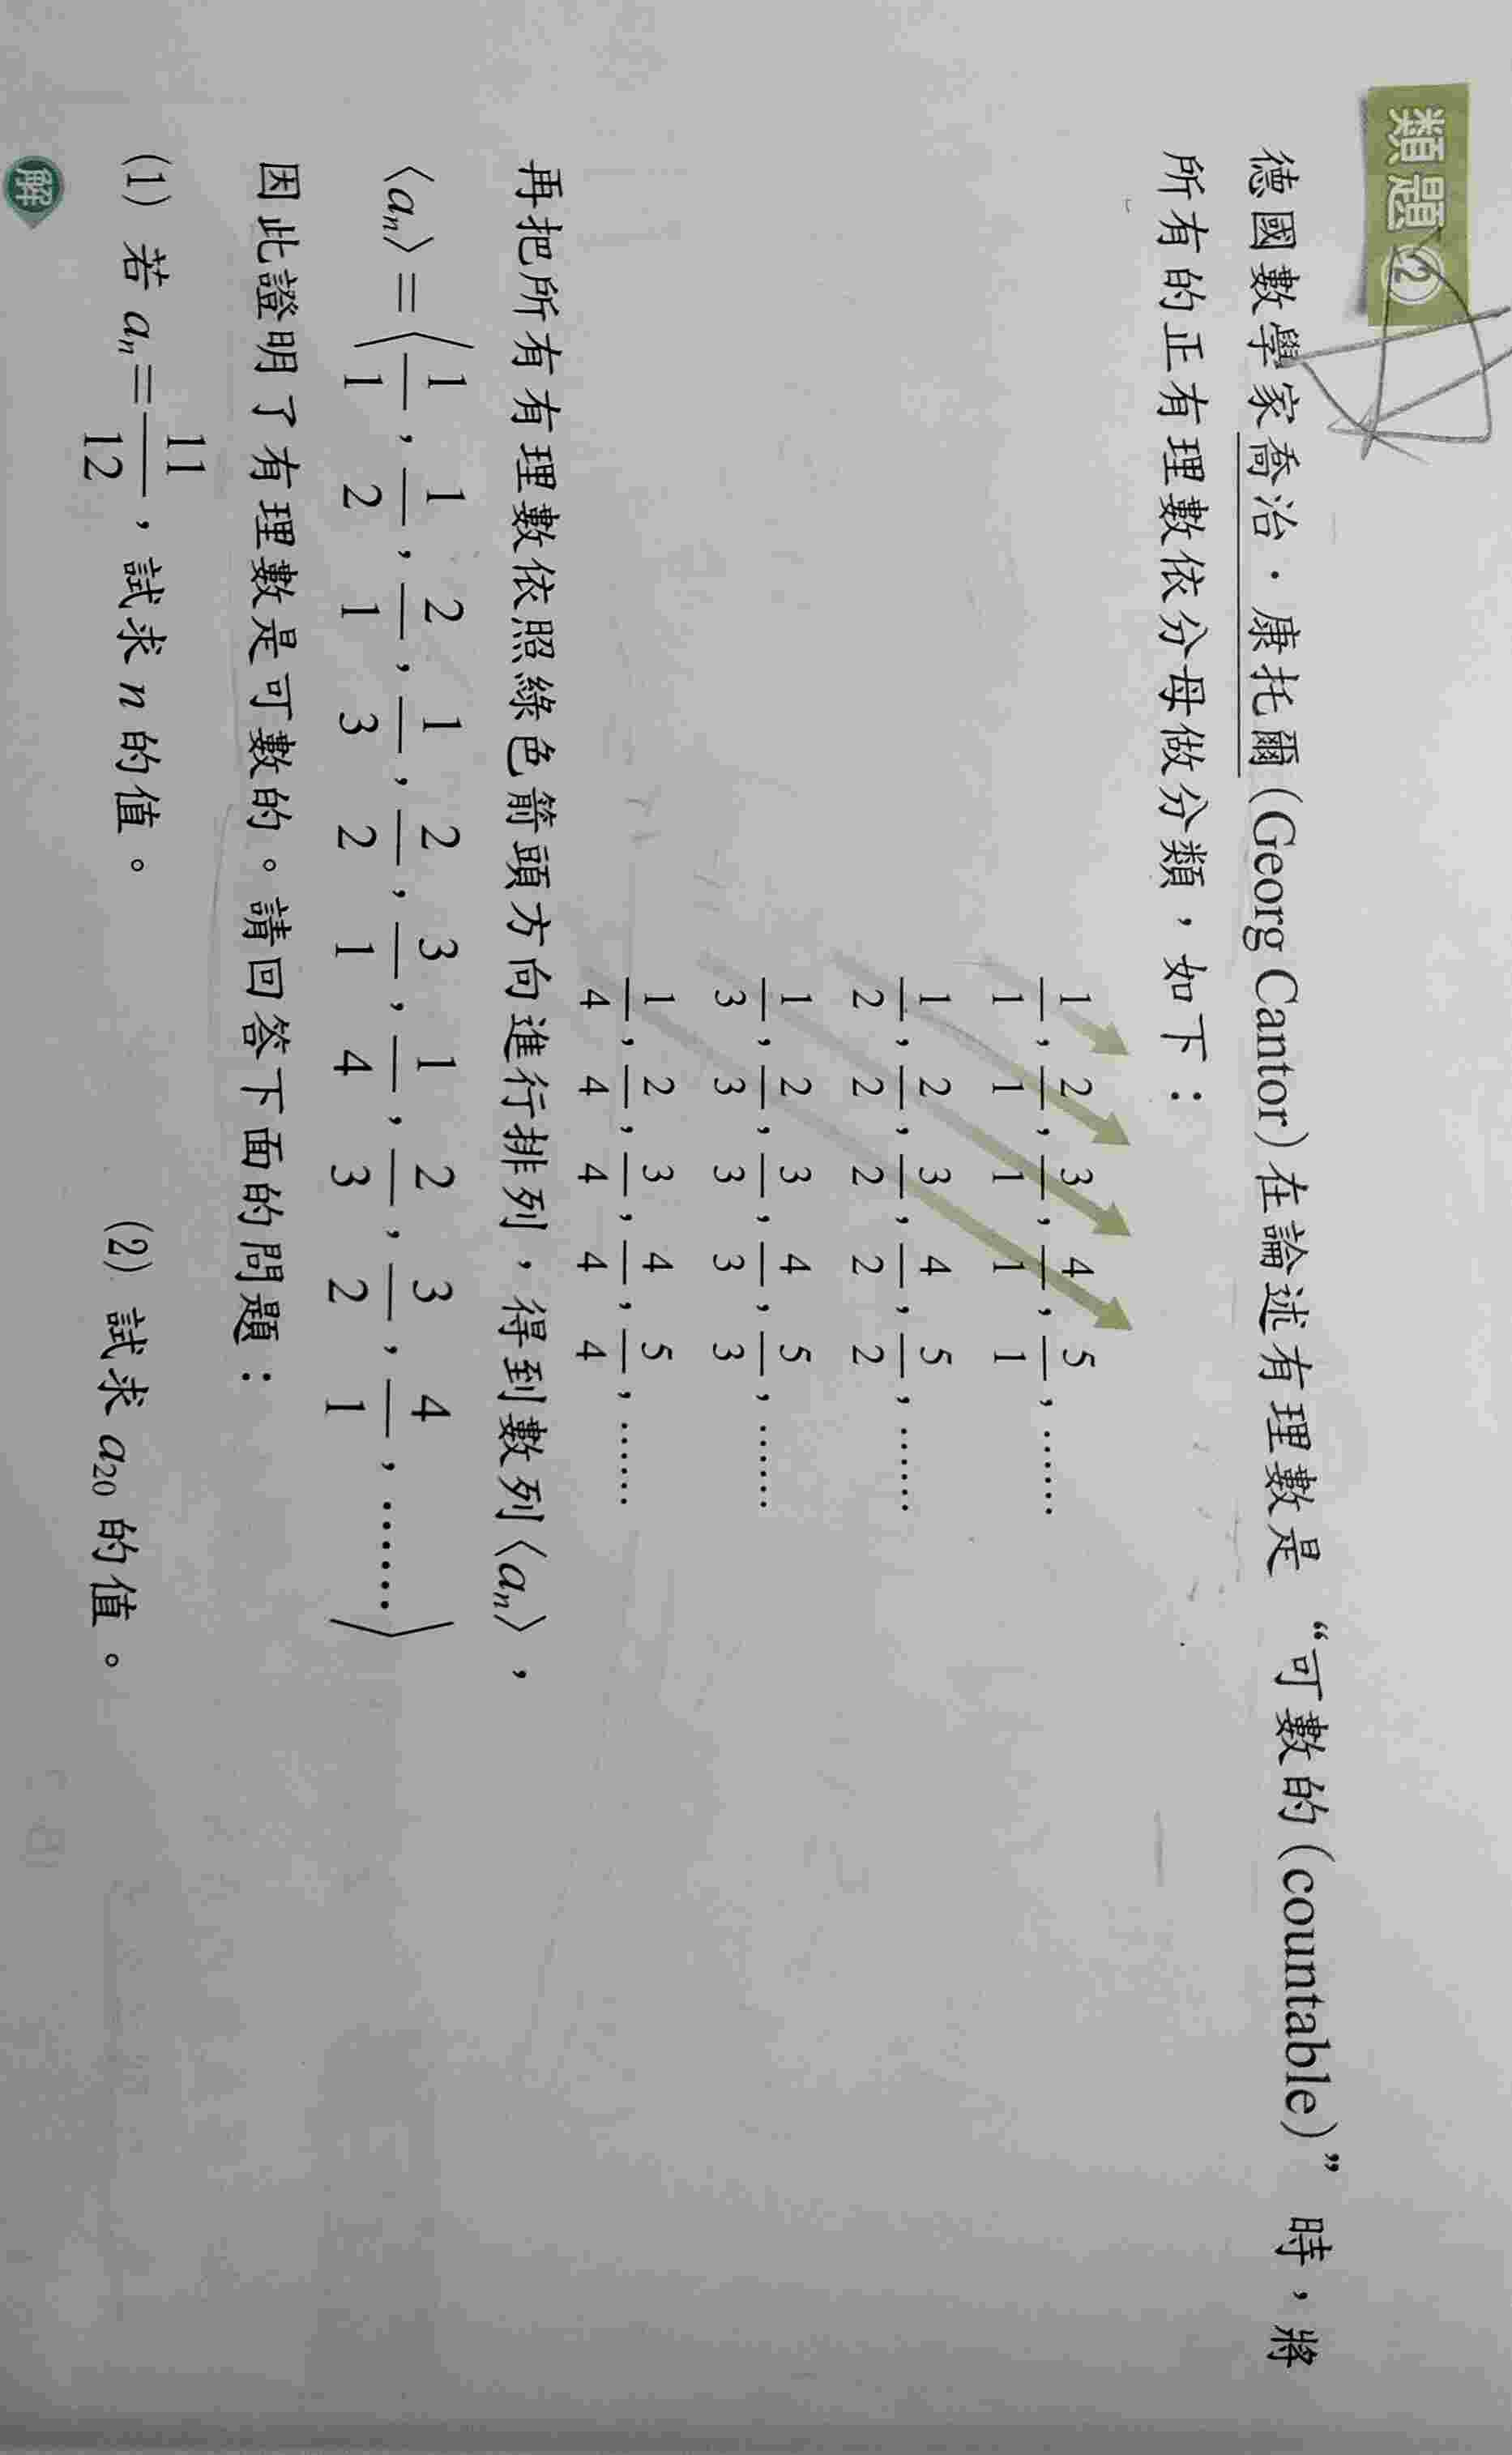 類題2
德國數學家喬治·康托爾(Georg Cantor)在論述有理數是“可數的(countable)”時,將
所有的正有理數依分母做分類,如下:
1/1, 2/1, 3/1, 4/1, 5/1, ……
1/2, 2/2, 3/2, 4/2, 5/2, ……
1/3, 2/3, 3/3, 4/3, 5/3, ……
1/4, 2/4, 3/4, 4/4, 5/4, ……
再把所有有理數依照綠色箭頭方向進行排列,得到數列⟨aₙ⟩,
⟨aₙ⟩=⟨1/1, 1/2, 2/1, 1/3, 2/2, 3/1, 1/4, 2/3, 3/2, 4/1, ……⟩
因此證明了有理數是可數的。請回答下面的問題:
(1) 若 aₙ=11/12,試求 n 的值。 (2) 試求 a₂₀ 的值。
解